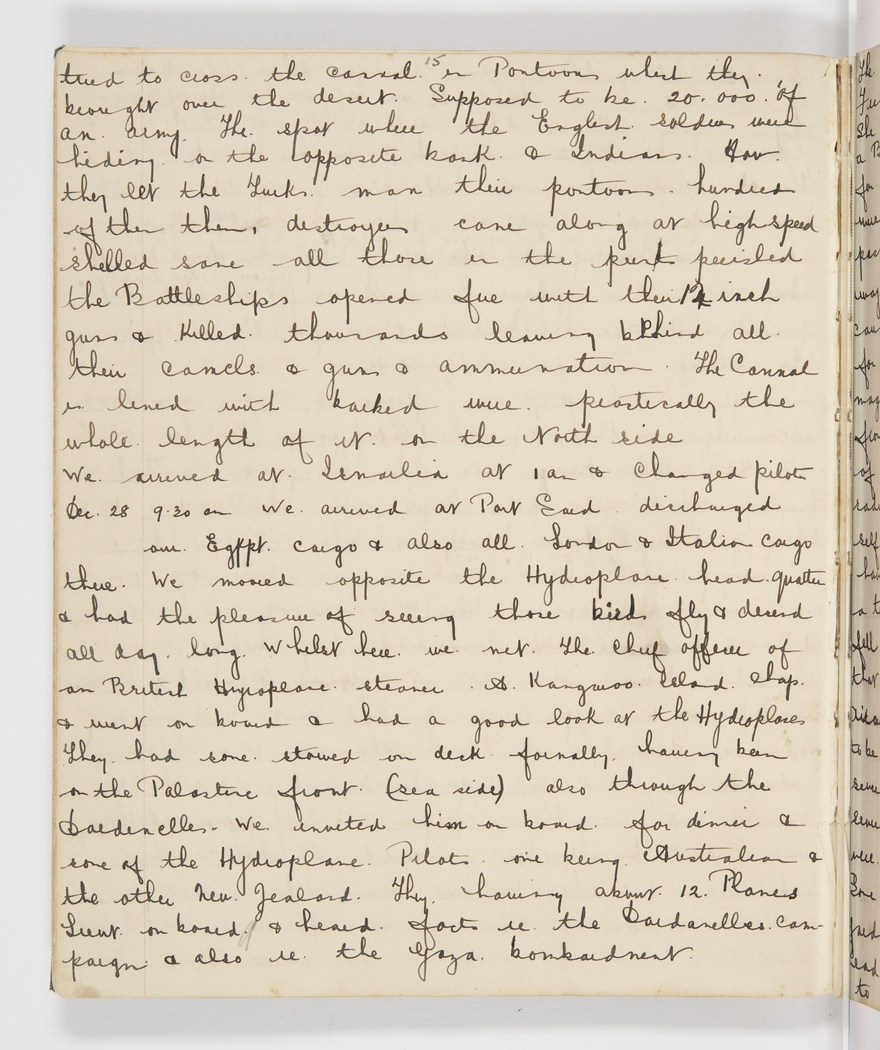 tried to cross. the cannal. 15 in Pontoons which they.
brought over the desert. Supposed to be. 20.000. of
an. army. The. spot where the English. soldiers were
hiding. on the opposite bank. & Indians. How.
they let the Turks. man their pontoons. hundred
of them, destroyer came along at high speed
shelled some all those in the perished
the Battleships opened fire with their 12 inch
guns & Killed. thousands leaving behind all.
their camels. & guns & ammunation. The Cannal
is lined with barbed wire. practically the
whole. length of it. on the North side
We. arrived at. Ismailia at 1 am & Changed pilots
Dec. 28 9.30 am We. arrived at Port Said discharged
our. Egypt. cargo & also all. London & Italian cargo
there. We moved opposite the Hydroplane. head. quarters
& had the pleasure of seeing those birds fly & decend
all day. long. Whilst here. we. met. The. Chief officer of
an British Hyroplane. steamer. A. Kangaroo. Island. Chap.
& went on board & had a good look at the Hydroplanes
They. had some. stowed on deck formally. having been
on the Palastine front. (sea side) also through the
Dardenelles. We. invited him on board. for dinner &
some of the Hydroplane. Pilots. one being. Australian &
the other New. Zealand. They. having about. 12. Planes
I went. on board. & heard. facts re. the Dardanelles. cam-
paign & also re. the Gaza. bombardment.